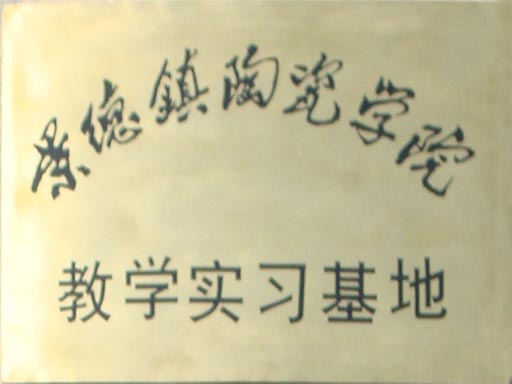 景德鎮陶瓷学院
教学实习基地